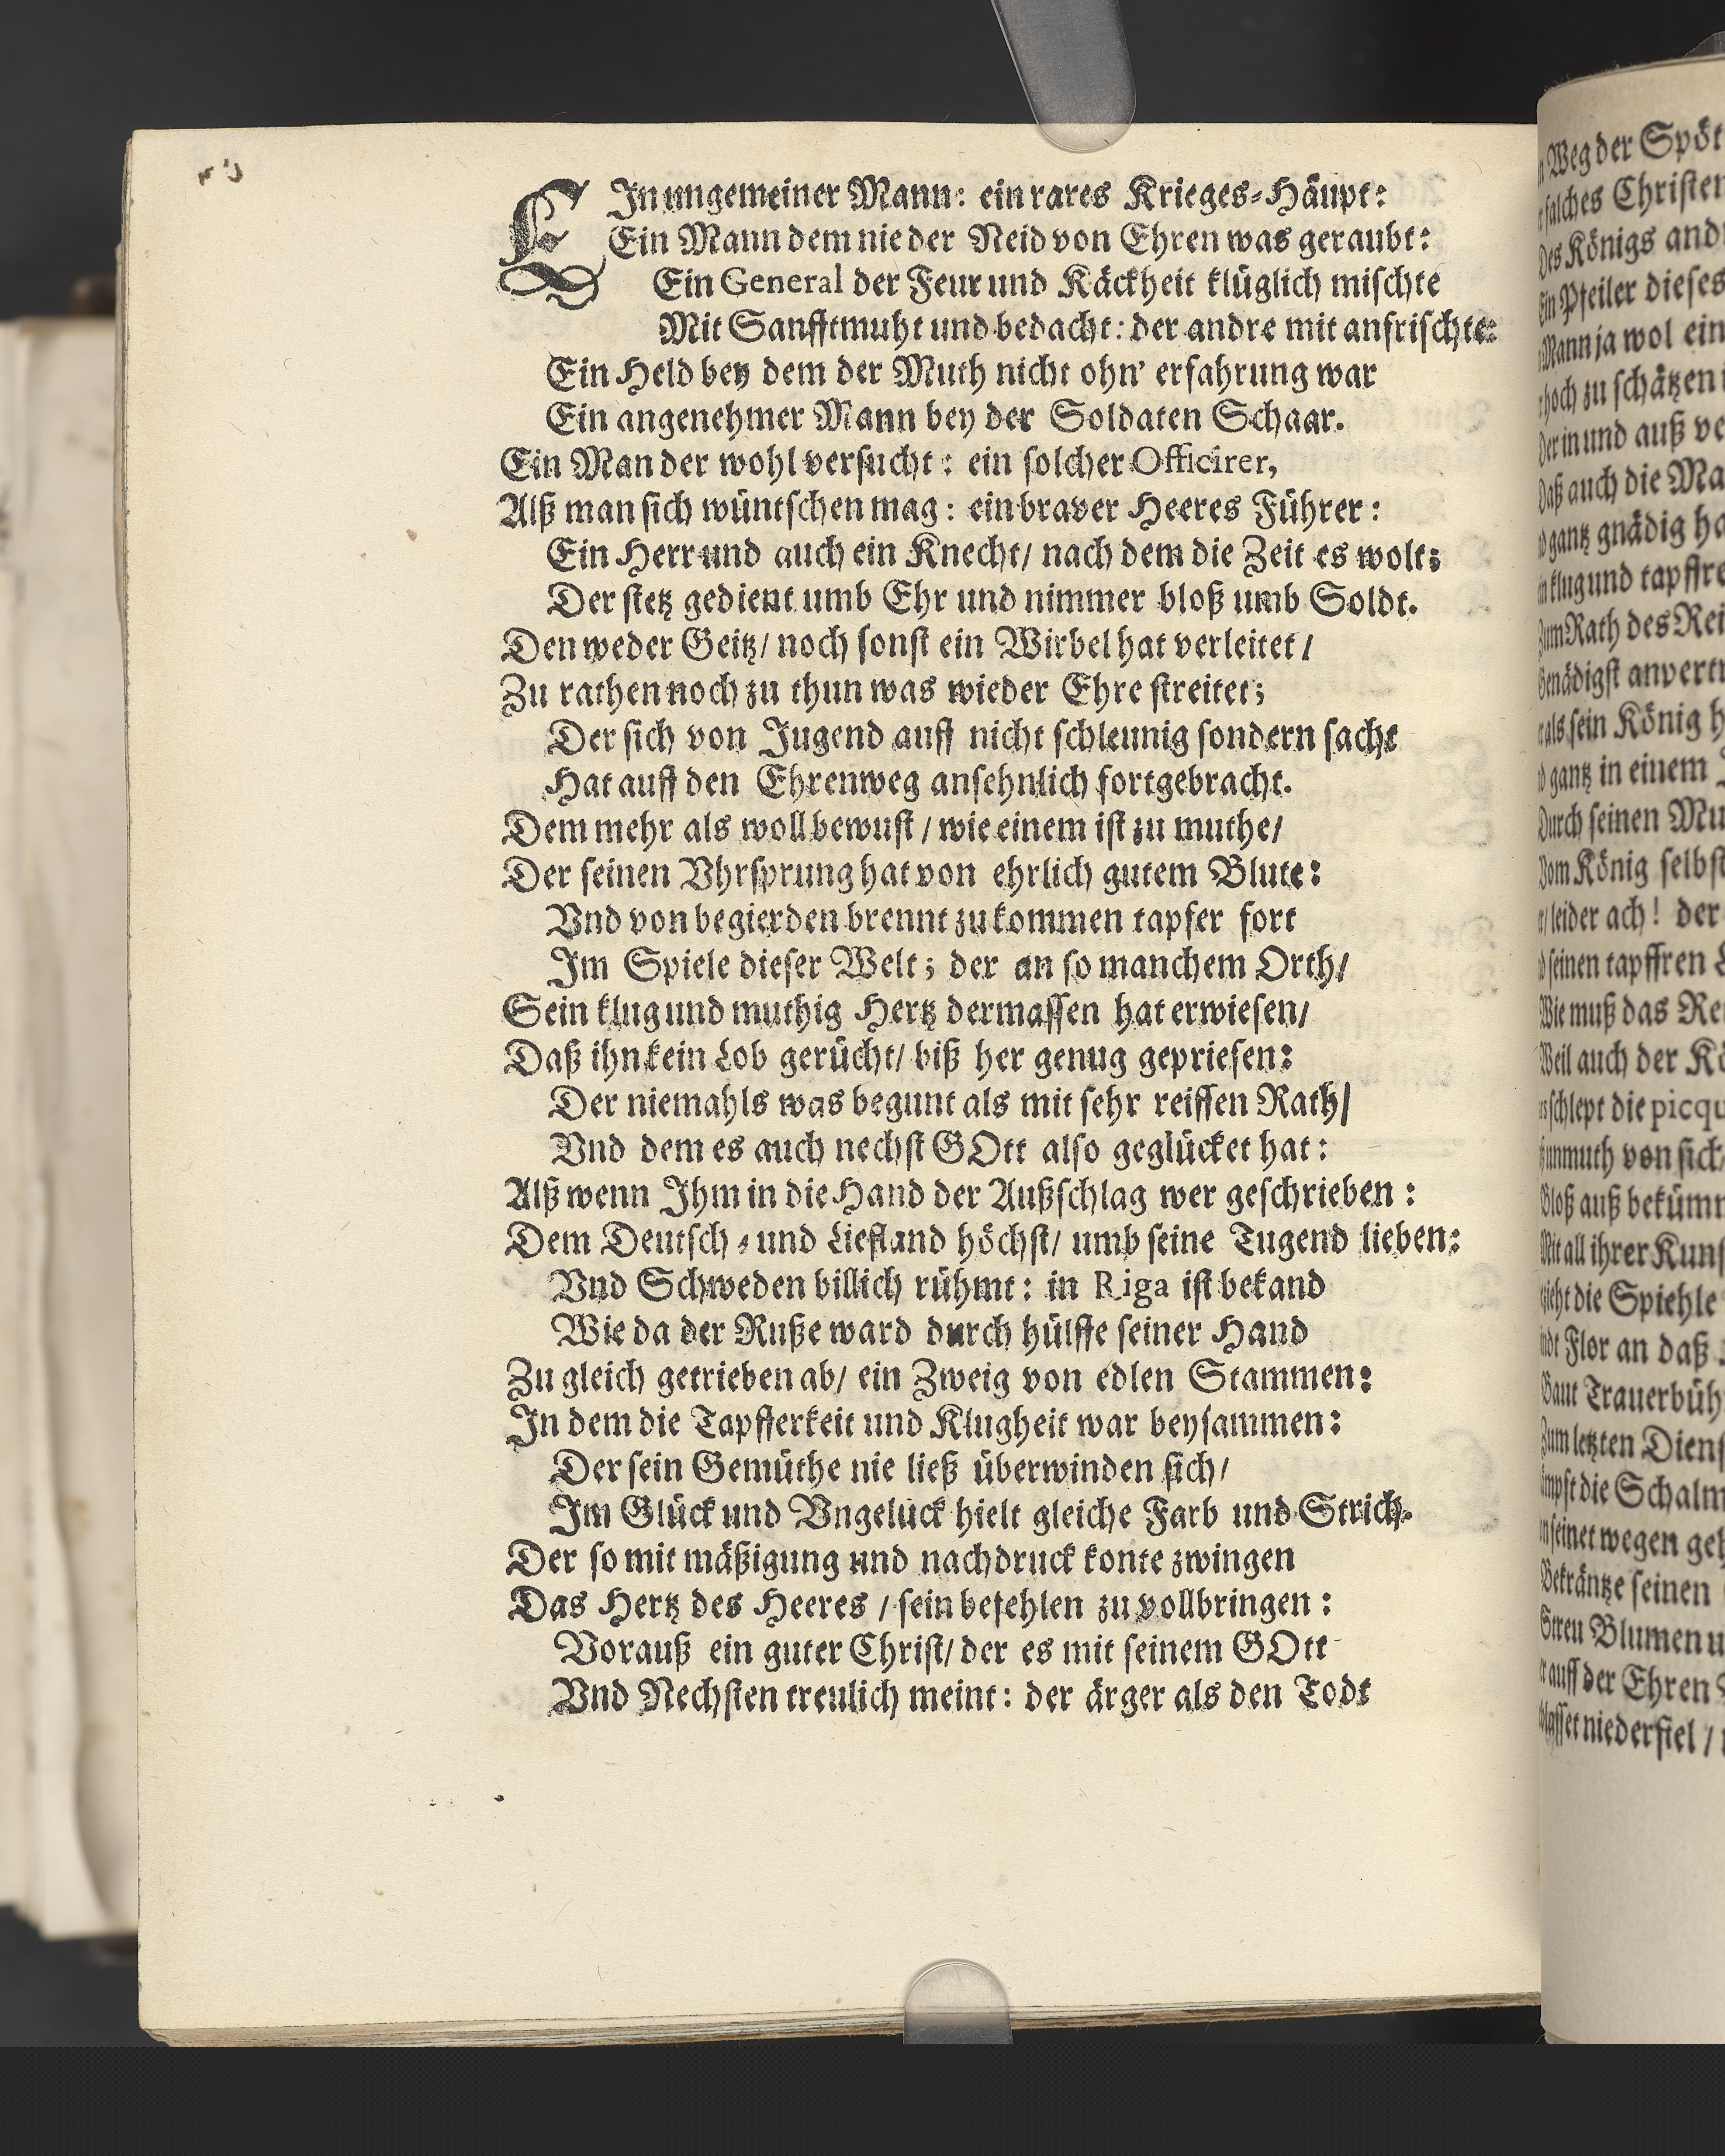 EIn ungemeiner Mann: ein rares Krieges-Häupt:
Ein Mann dem nie der Neid von Ehren was geraubt:
Ein General der Feur und Käckheit klüglich mischte
Mit Sanfftmuht und bedacht: der andre mit anfrischte:
Ein Held bey dem der Muth nicht ohn' erfahrung war
Ein angenehmer Mann bey der Soldaten Schaar.
Ein Man der wohl versucht: ein solcher Officirer,
Alß man sich wüntschen mag: ein braver Heeres Führer:
Ein Herr und auch ein Knecht/ nach dem die Zeit es wolt;
Der stetz gedient umb Ehr und nimmer bloß umb Soldt.
Den weder Geitz/ noch sonst ein Wirbel hat verleitet/
Zu rathen noch zu thun was wieder Ehre streitet;
Der sich von Jugend auff nicht schleunig sondern sacht
Hat auff den Ehrenweg ansehnlich fortgebracht.
Dem mehr als woll bewust/ wie einem ist zu muthe/
Der seinen Vhrsprung hat von ehrlich gutem Blute:
Vnd von begierden brennt zu kommen tapfer fort
Im Spiele dieser Welt; der an so manchem Orth/
Sein klug und muthig Hertz dermassen hat erwiesen/
Daß ihn kein Lob gerücht/ biß her genug gepriesen:
Der niemahls was begunt als mit sehr reiffen Rath/
Vnd dem es auch nechst GOtt also geglücket hat:
Alß wenn Ihm in die Hand der Außschlag wer geschrieben:
Dem Deutsch- und Liefland höchst/ umb seine Tugend lieben:
Vnd Schweden billich rühmt: in Riga ist bekand
Wie da der Ruße ward durch hülffe seiner Hand
Zu gleich getrieben ab/ ein Zweig von edlen Stammen:
In dem die Tapfferkeit und Klugheit war beysammen:
Der sein Gemüthe nie ließ überwinden sich/
Im Glück und Vngelück hielt gleiche Farb und Strich.
Der so mit mäßigung und nachdruck konte zwingen
Das Hertz des Heeres/ sein befehlen zu vollbringen:
Vorauß ein guter Christ/ der es mit seinem GOtt
Vnd Nechsten treulich meint: der ärger als den Todt
Weg der
falches
des Königs
Ein Pfeiler dieses
Mann ja wol ein
hoch zu schätzen
Der in und auß
Daß auch die
gantz gnädig
klug und
Zum Rath des
Genädigst
als sein König
gantz in einem
Durch seinen
Vom König selbst
leider ach! der
seinen tapffren
Wie muß das
Weil auch der
schlept die
unmuth von sich
Bloß auß
Mit all ihrer
zieht die Spiehle
Flor an daß
Baut
Zum letzten
die
seinet wegen
Bekräntze seinen
Streu Blumen
auff der Ehren
niederfiel /